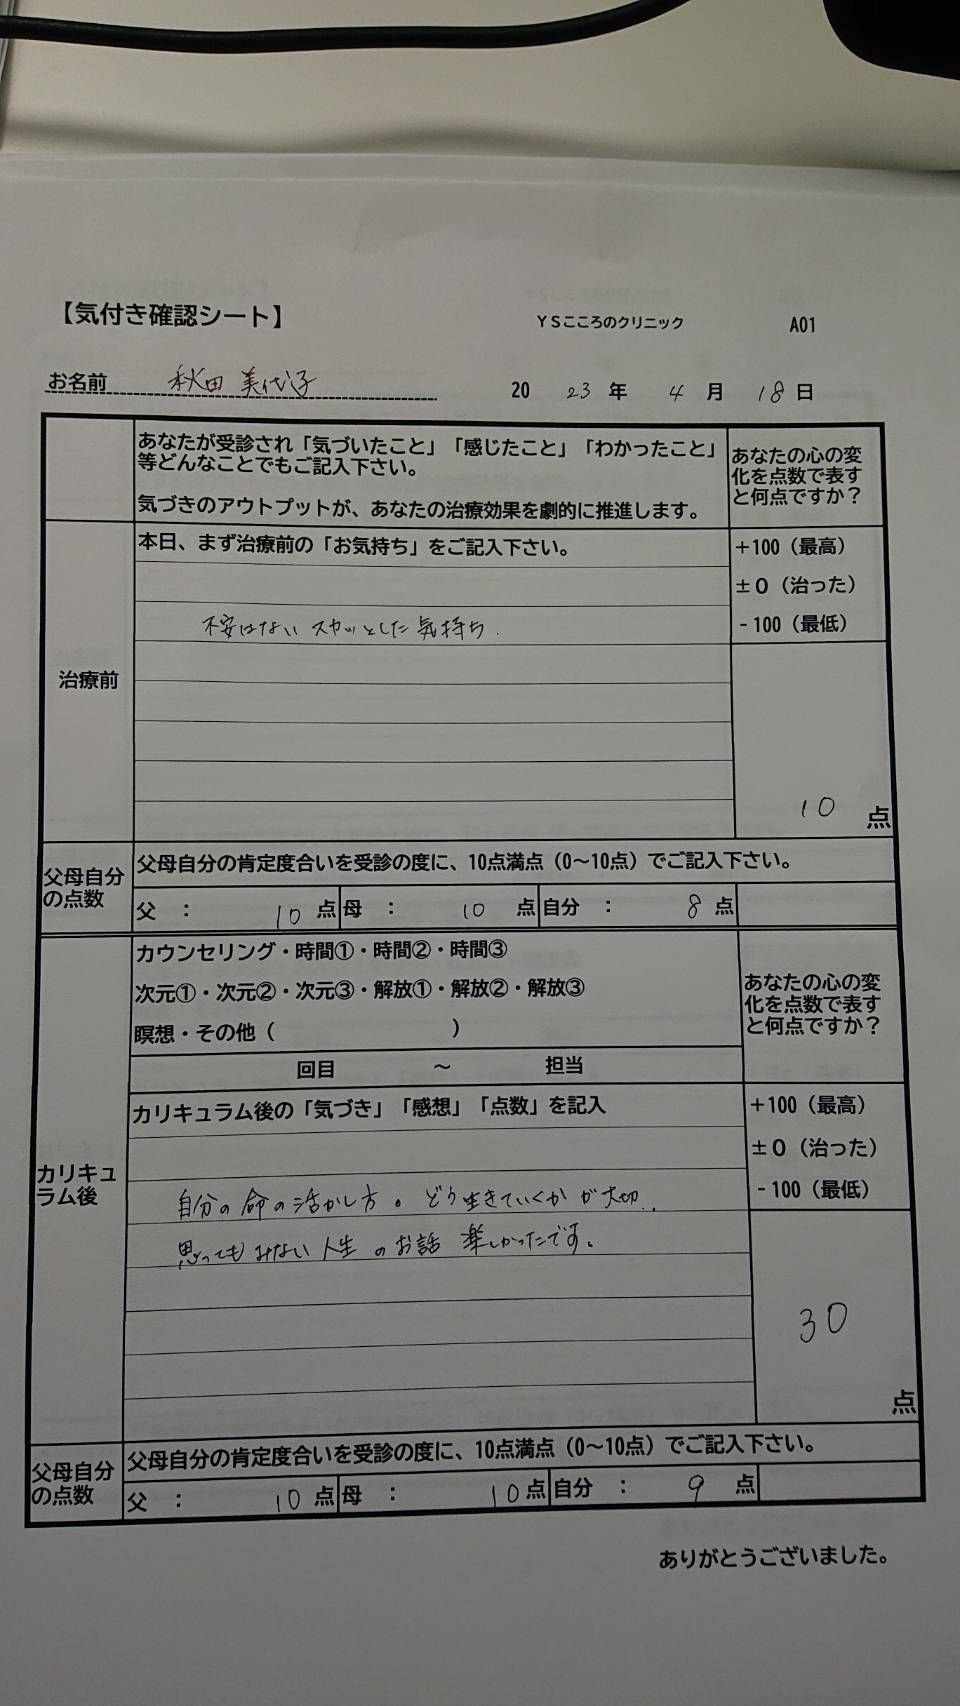 【気付き確認シート】
YSこころのクリニック
A01
お名前 秋田 美代子
20 23 年 4 月 18 日
あなたが受診され「気づいたこと」「感じたこと」「わかったこと」
等どんなことでもご記入下さい。
気づきのアウトプットが、あなたの治療効果を劇的に推進します。
あなたの心の変
化を点数で表す
と何点ですか？
治療前
本日、まず治療前の「お気持ち」をご記入下さい。
不安はない スカッとした気持ち.
+100（最高）
±0（治った）
-100（最低）
10 点
父母自分
の点数
父母自分の肯定度合いを受診の度に、10点満点（0～10点）でご記入下さい。
父 ： 10 点 母 ： 10 点 自分 ： 8 点
カリキュ
ラム後
カウンセリング・時間①・時間②・時間③
次元①・次元②・次元③・解放①・解放②・解放③
瞑想・その他（ ）
回目 ～ 担当
あなたの心の変
化を点数で表す
と何点ですか？
カリキュラム後の「気づき」「感想」「点数」を記入
自分の命の活かし方。どう生きていくかが大切..
思ってもみない人生のお話 楽しかったです。
+100（最高）
±0（治った）
-100（最低）
30
点
父母自分
の点数
父母自分の肯定度合いを受診の度に、10点満点（0～10点）でご記入下さい。
父 ： 10 点 母 ： 10 点 自分 ： 9 点
ありがとうございました。